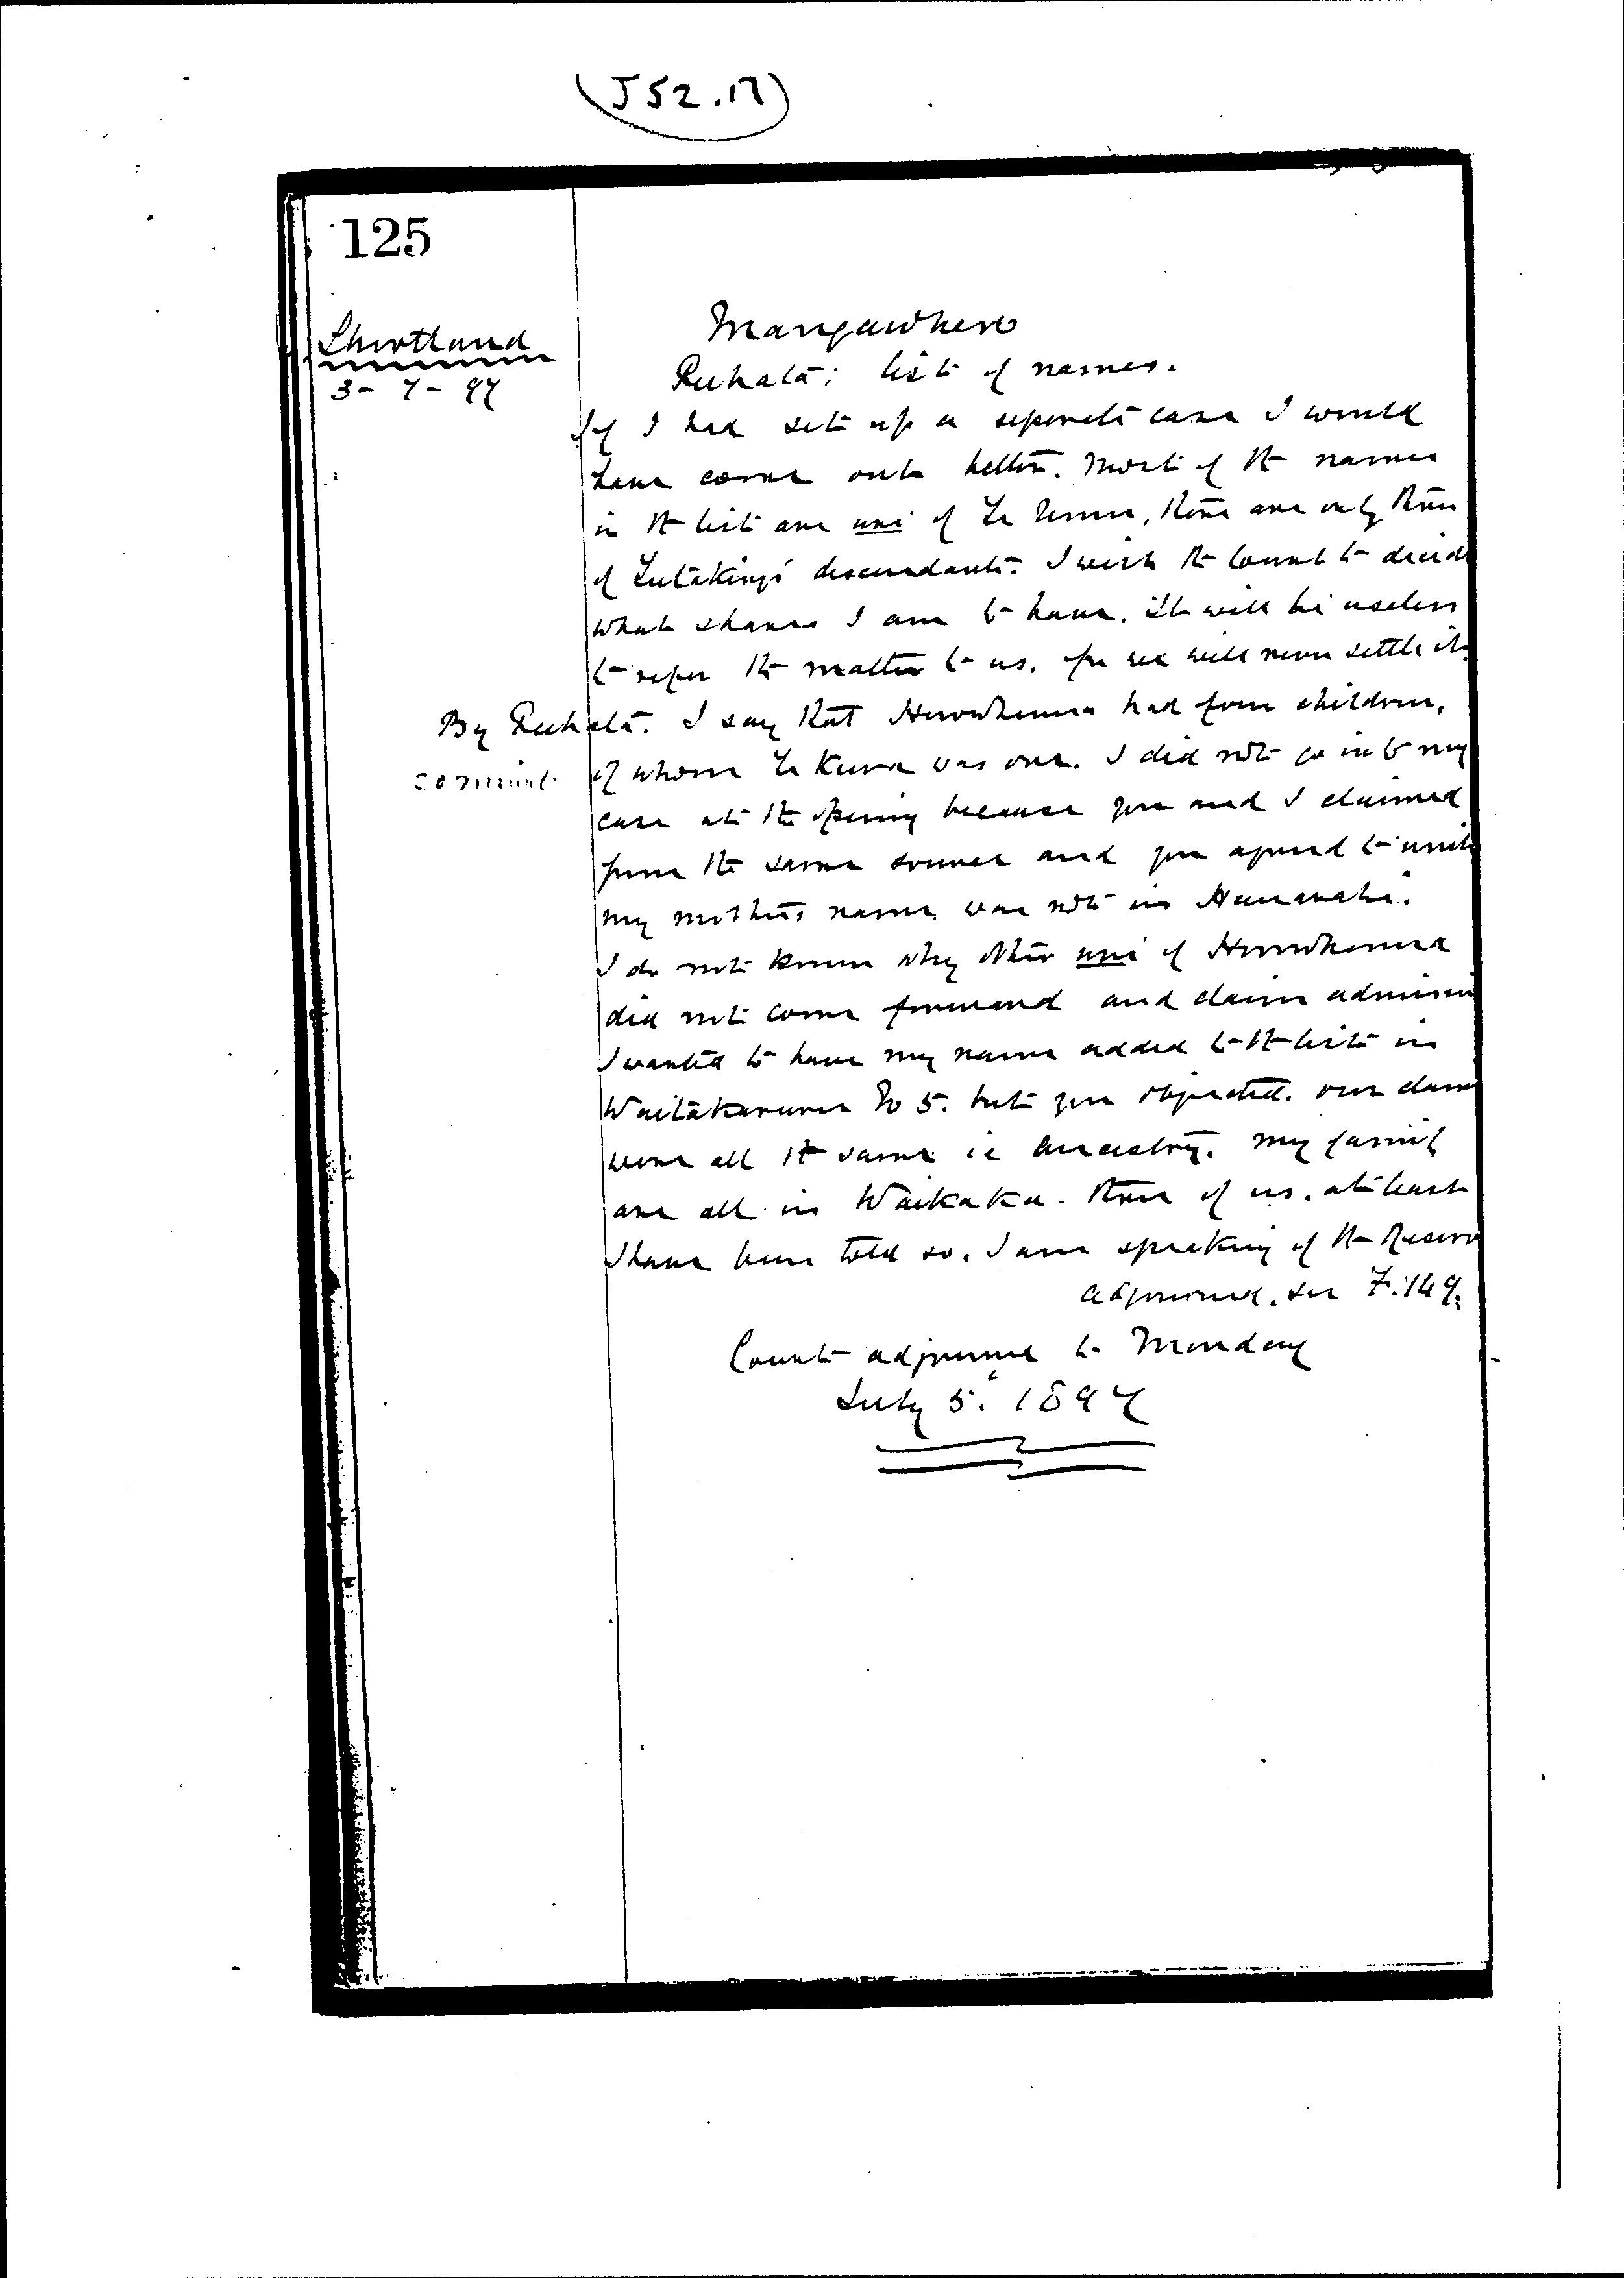 (J52.17)
125
Shortland
3-7-97
Mangawhero
Rihata: list of names.
If I had set up a separate case I would
have come out better. Most of the names
in the list are uri of Te, there are only three
of descendants. I wish the Court to decide
what shares I am to have. It will be useless
to refer the matter to us. for we will never settle it.
By. I say that Horowhenua had four children,
of whom Te Kura was one. I did not go into my
case at the opening because you and I claimed
from the same source and you agreed to unite
my mother's name was not in Hauarahi.
I do not know why other uri of Horowhenua
did not come forward and claim admission
I wanted to have my name added to the list in
Waitakaruru No 5. but you objected. our claims
were all the same ie ancestry. my family
are all in Waikaka. three of us. at least
I have been told so. I am speaking of the Reserve
adjourned. see F. 149.
Court adjourned to Monday
July 5. 1897